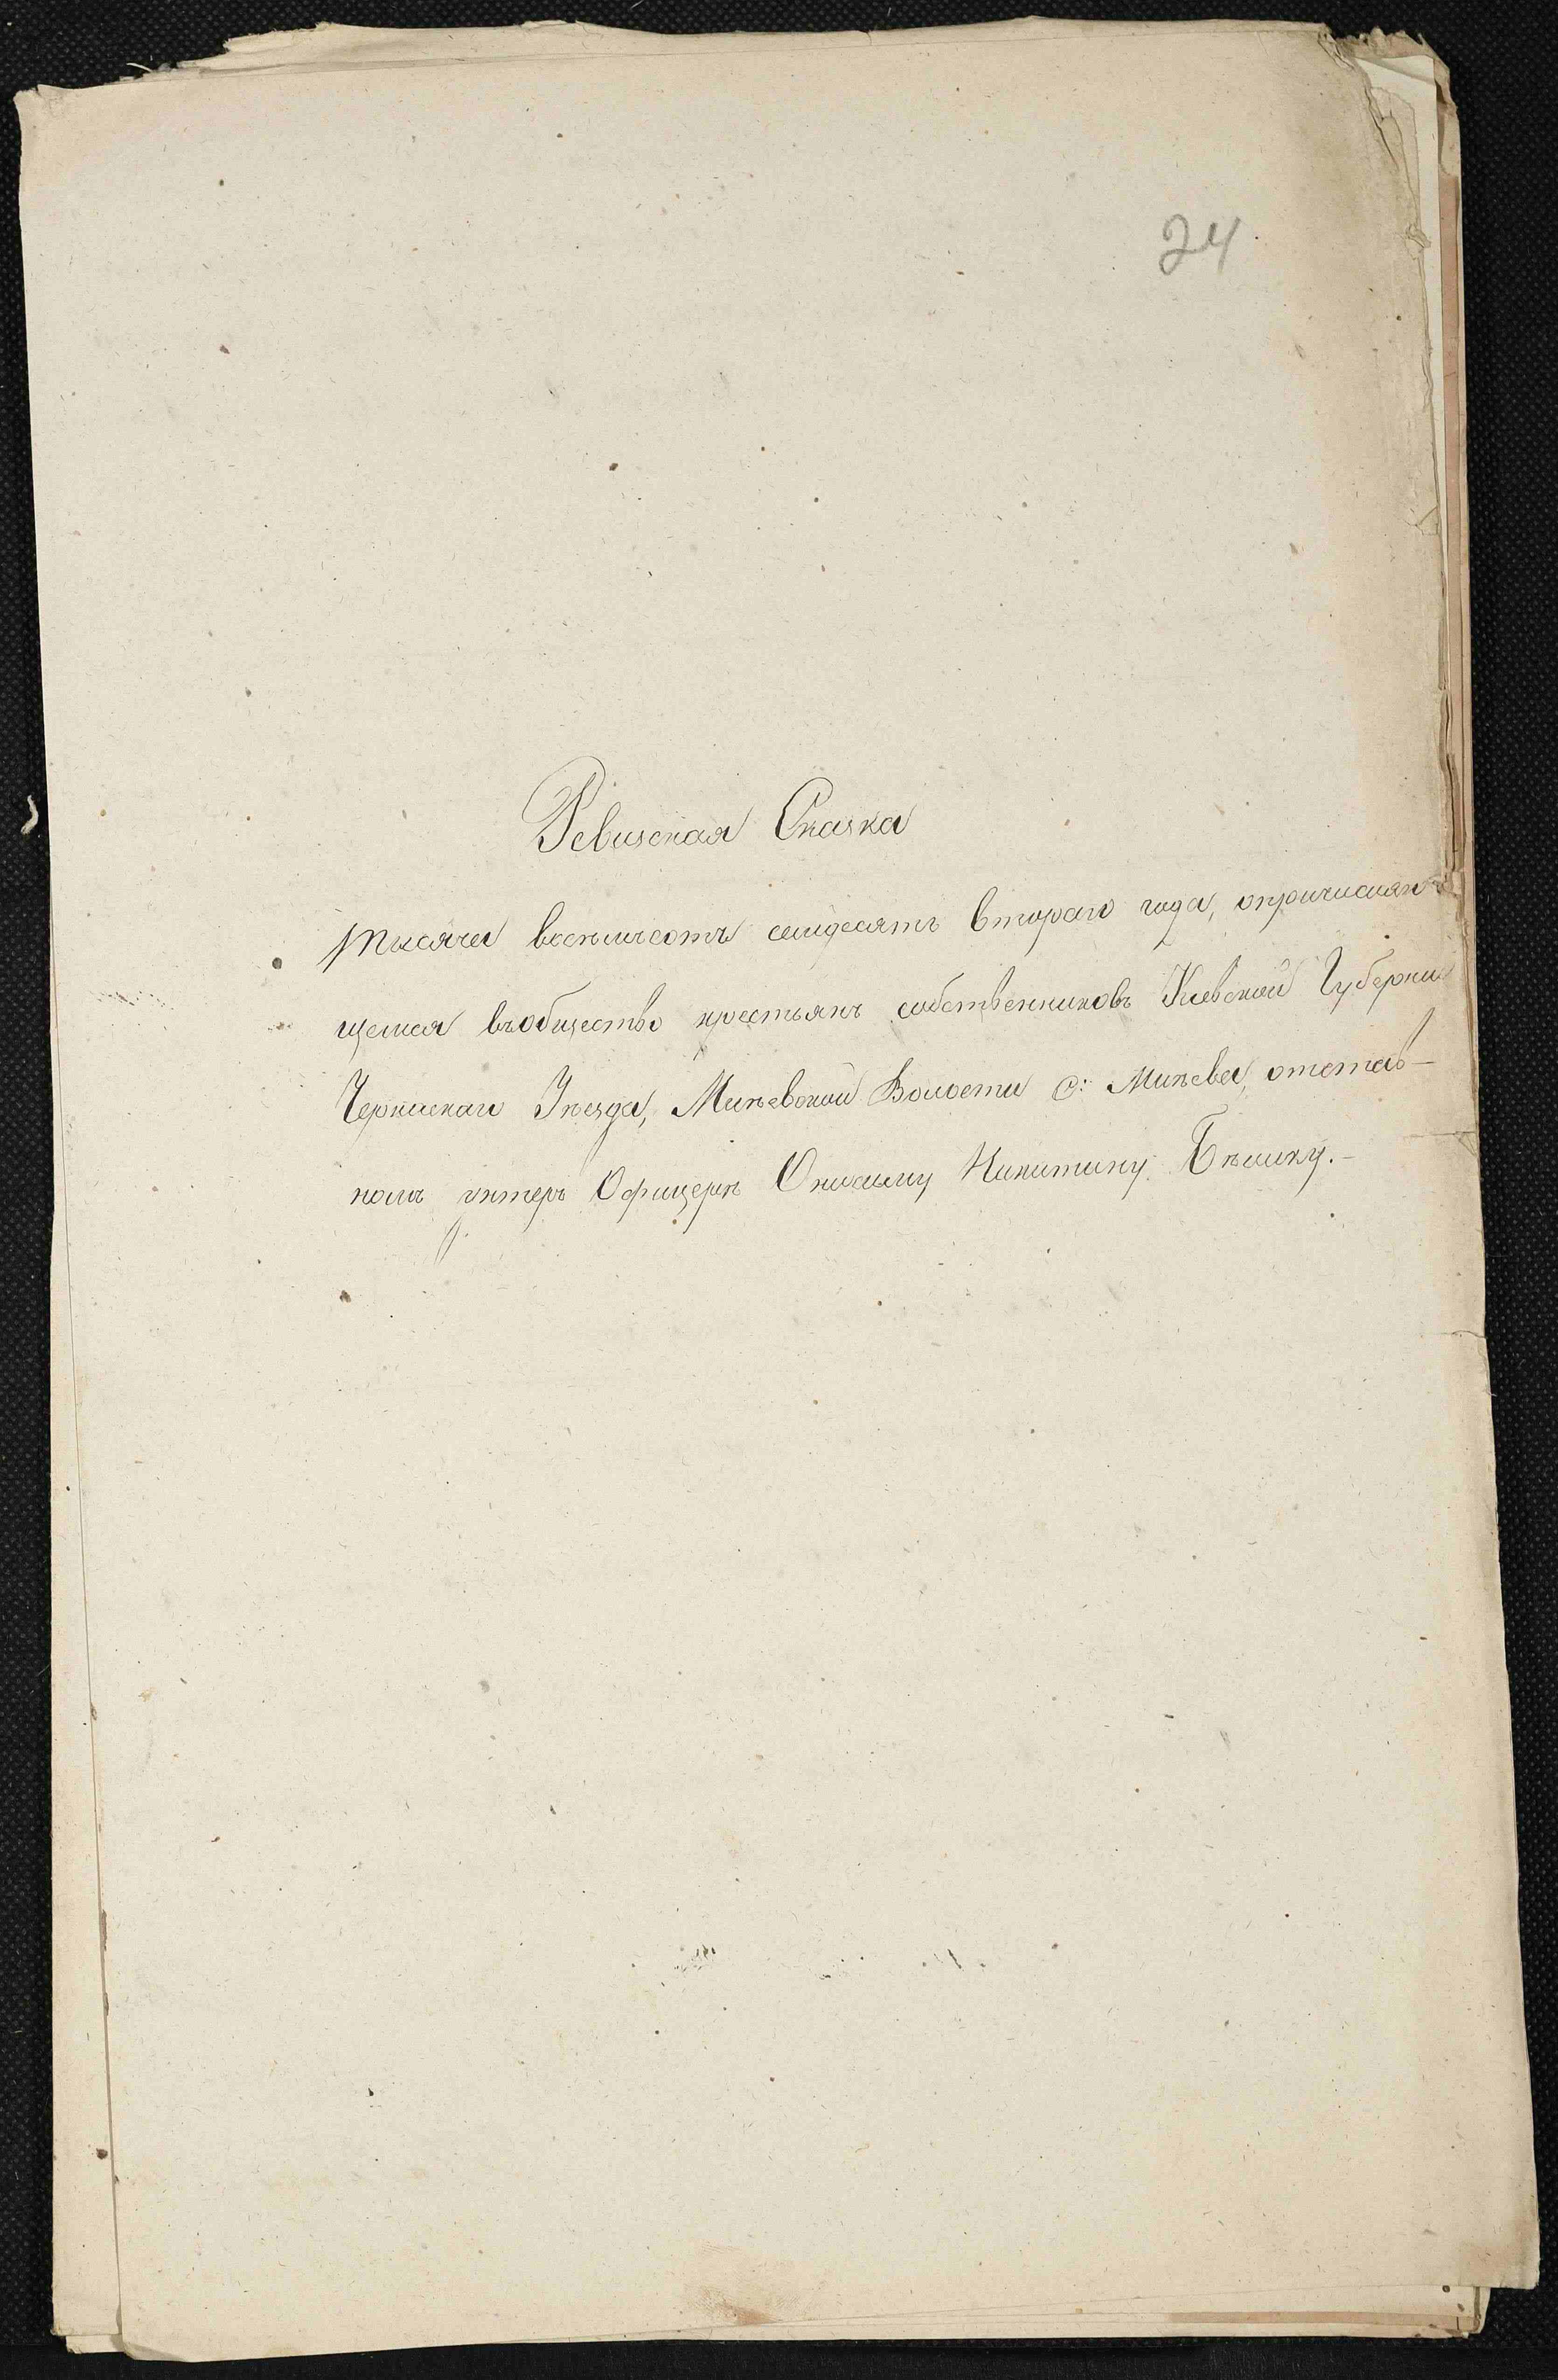 24
Ревизская Сказка
тысяча восемьсотъ семдесятъ втораго года, опричисляю-
щемся въ общество крестьянъ собственниковъ Кіевской Губерніи
Черкаскаго Уѣзда, Млѣевской Волости с: Млѣева, отстав-
номъ унтеръ Офицерѣ Онисиму Никитину Бѣлику.-